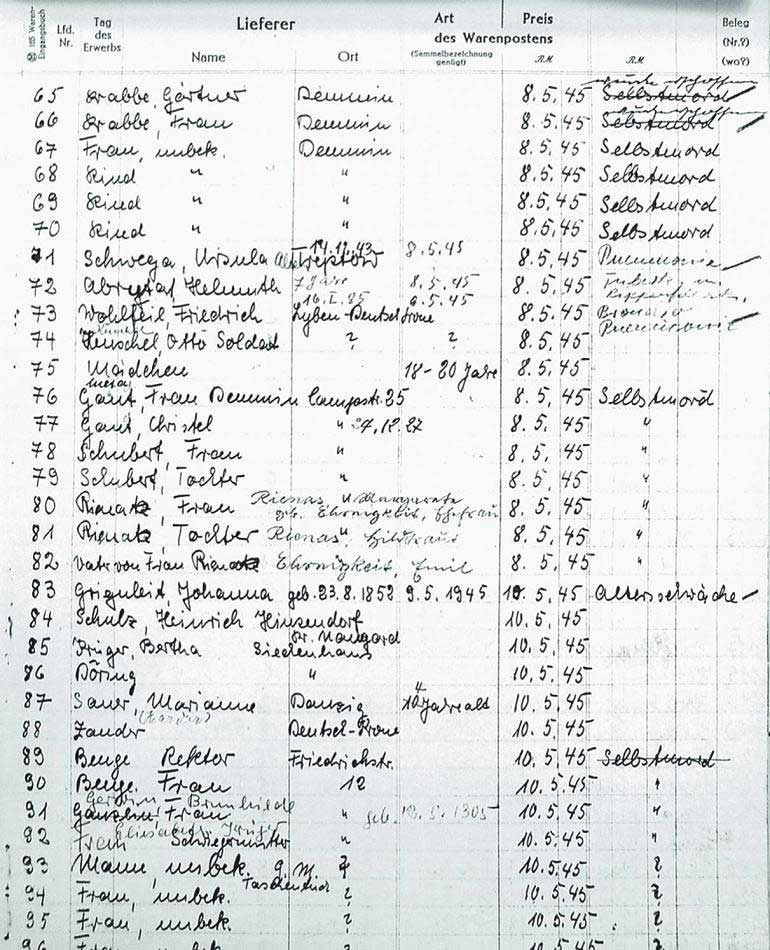 105 Waren-Eingangsbuch
Lfd. Nr.
Tag des Erwerbs
Lieferer
Name
Ort
Art
des Warenpostens
(Sammelbezeichnung genügt)
Preis
RM
RM
Beleg
(Nr.?)
(wo?)
65 Krabbe, Gärtner Demmin 8.5.45 Selbstmord
66 Krabbe, Frau Demmin 8.5.45 Selbstmord
67 Frau, unbek. Demmin 8.5.45 Selbstmord
68 Kind " " 8.5.45 Selbstmord
69 Kind " " 8.5.45 Selbstmord
70 Kind " " 8.5.45 Selbstmord
14.12.43
71 Schwega, Ursula Treptow 8.5.45 8.5.45 Pneumonie
72 Helmuth 7 Jahre 8.5.45 8.5.45
16.I.85 6.5.45
73 Wohlfeil, Friedrich Lyben-Deutsch Krone 8.5.45
74 Henschel Otto Soldat ? ? 8.5.45 Pneumonie
75 Mädchen 18-20 Jahre 8.5.45
76 Gaut, Frau Demmin 25 8.5.45 Selbstmord
77 Gaut, Christel " 27.12.22 8.5.45 "
78 Schubert, Frau " 8.5.45 "
79 Schubert, Tochter " 8.5.45 "
80 Frau Rionas, Margarete 8.5.45 "
geb. Ehronigkeit, Ehefrau
81 Tochter Rionas, Hildtraut " 8.5.45 "
82 Vater von Frau Ehronigkeit, Emil 8.5.45 "
83 Griguleit, Johanna geb. 23.8.1852 9.5.1945 10.5.45 Altersschwäche
84 Schulz, Heinrich Hinzendorf 10.5.45
Kr. Naugard
85 Krüger, Bertha Siedenhaus 10.5.45
86 Döring " 10.5.45
87 Sauer, Marianne Danzig Jahre alt 10.5.45
88 Zander Deutsch-Krone 10.5.45
89 Benge Rektor Friedrichstr. 10.5.45 Selbstmord
90 Benge, Frau 12 10.5.45 "
Brunhilde
91 Frau " geb. 10.5.45 "
Elisabeth Krüger
92 Frau Schwiegermutter " 10.5.45 "
93 Mann unbek. G.M. ? 10.5.45 ?
Taschentuch
94 Frau, unbek. ? 10.5.45 ?
95 Frau, unbek. ? 10.5.45 ?
96 Frau unbek. 10.5.45